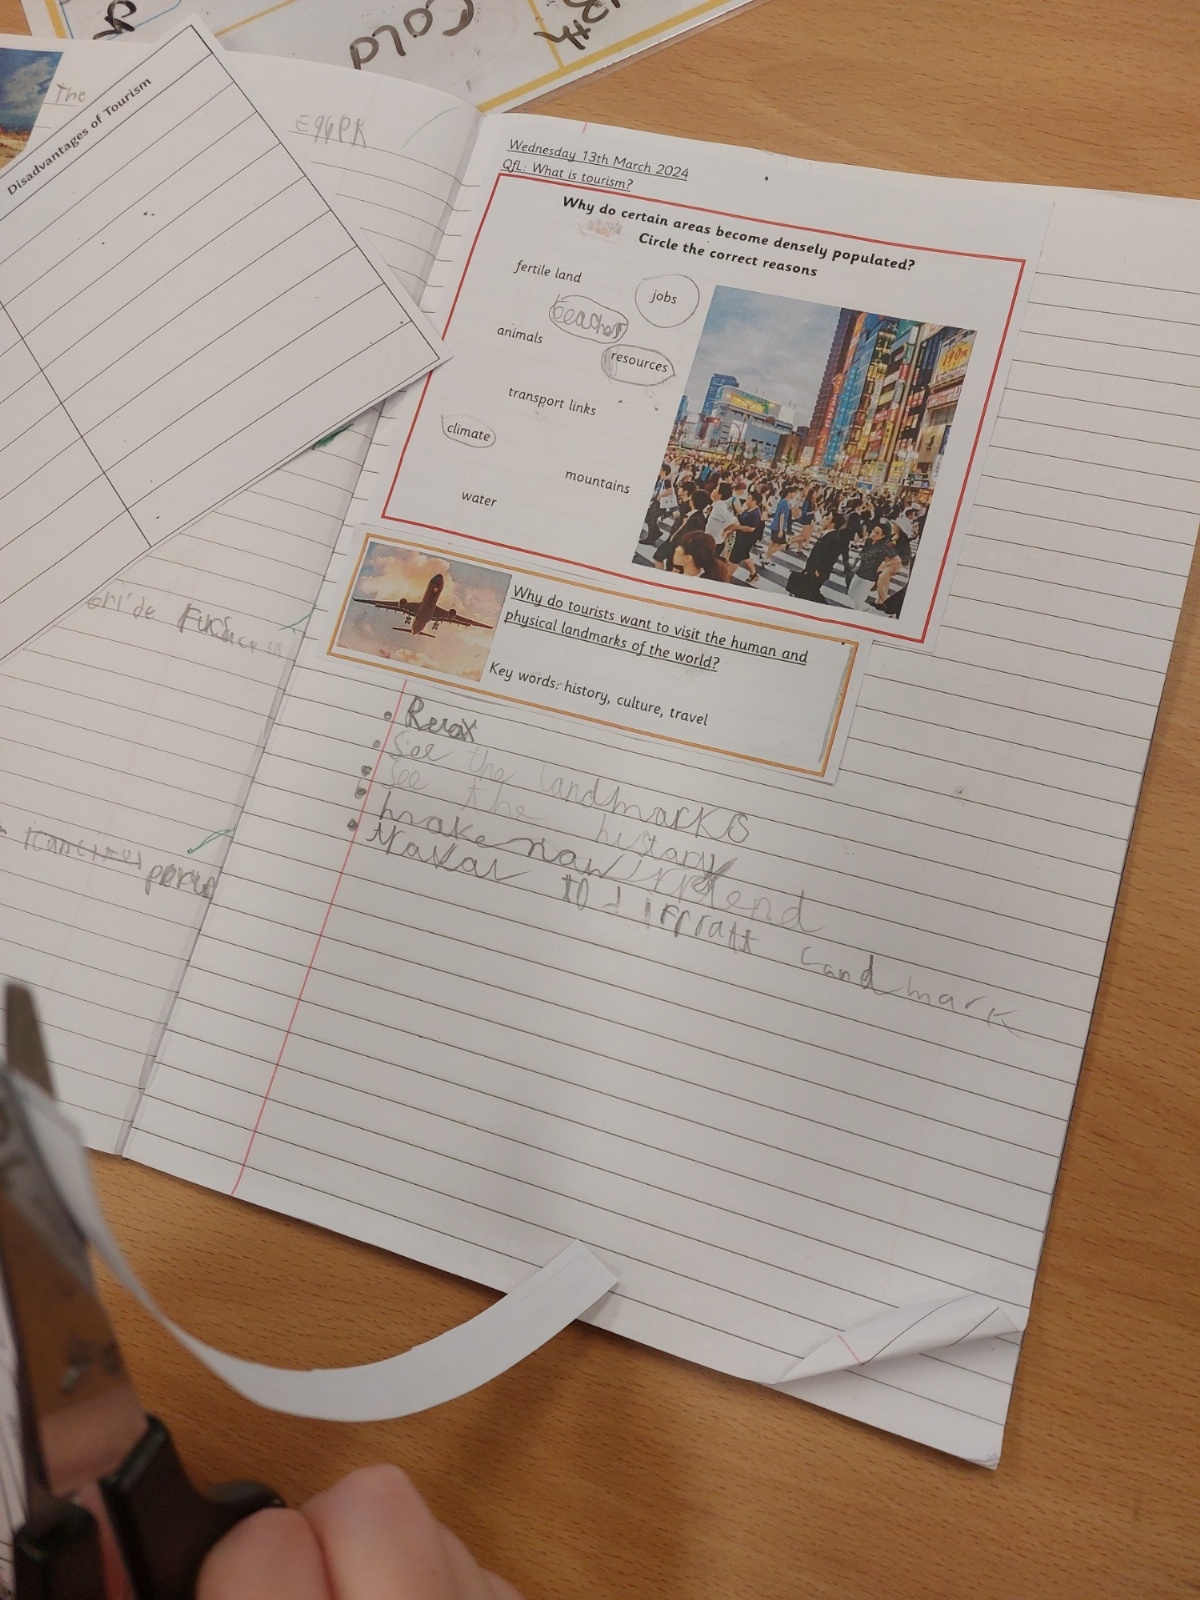 COLD
The
Egypk
Disadvantages of Tourism
Wednesday 13th March 2024
QfL: What is tourism?
Why do certain areas become densely populated?
Circle the correct reasons
fertile land
jobs
beaches
animals
resources
transport links
climate
mountains
water
Why do tourists want to visit the human and
physical landmarks of the world?
Key words: history, culture, travel
• Relax
• See the landmarks
• See the history
• make naw frriend
• to diffratt Landmark